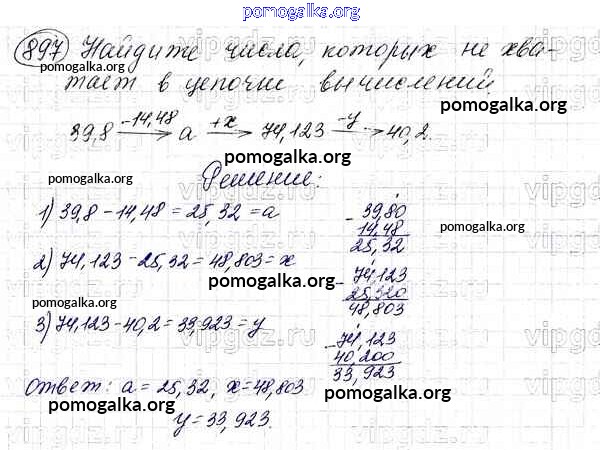 pomogalka.org
897 Найдите числа, которых не хва-
pomogalka.org
тает в цепочке вычислений.
pomogalka.org
39,8 -14,48 → a +x → 74,123 -y → 40,2.
pomogalka.org
pomogalka.org
Решение:
pomogalka.org
1) 39,8 - 14,48 = 25,32 = a
- 39,80
14,48
25,32
pomogalka.org
pomogalka.org
2) 74,123 - 25,32 = 48,803 = x
- 74,123
25,320
48,803
pomogalka.org
pomogalka.org
pomogalka.org
3) 74,123 - 40,2 = 33,923 = y
- 74,123
40,200
33,923
pomogalka.org
Ответ: a = 25,32, x = 48,803
pomogalka.org
pomogalka.org
y = 33,923.